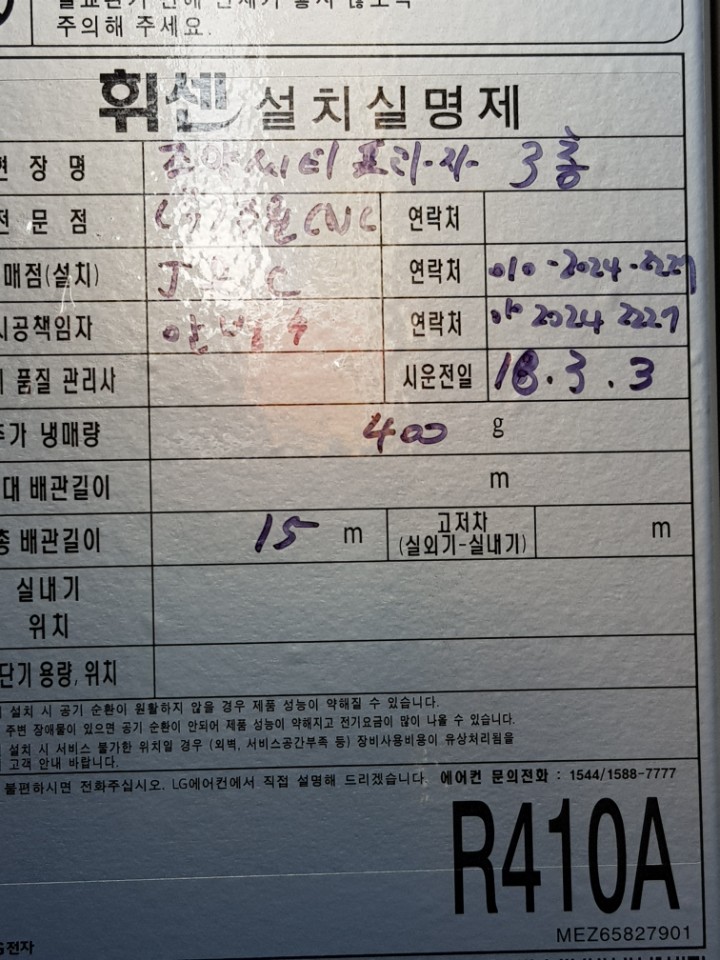 주의해 주세요.
휘센 설치실명제
현 장 명 씨티프라자 3층
전 문 점 CNC 연락처
매점(설치) J C 연락처 010-2024-2227
시공책임자 안 연락처 010 2024 2227
품질 관리사 시운전일 18.3.3
추가 냉매량 400 g
대 배관길이 m
총 배관길이 15 m 고저차 (실외기-실내기) m
실내기
위치
단기 용량, 위치
설치 시 공기 순환이 원활하지 않을 경우 제품 성능이 약해질 수 있습니다.
주변 장애물이 있으면 공기 순환이 안되어 제품 성능이 약해지고 전기요금이 많이 나올 수 있습니다.
설치 시 서비스 불가한 위치일 경우 (외벽, 서비스공간부족 등) 장비사용비용이 유상처리됨을
고객 안내 바랍니다.
불편하시면 전화주십시오. LG에어컨에서 직접 설명해 드리겠습니다. 에어컨 문의전화 : 1544/1588-7777
R410A
MEZ65827901
G전자